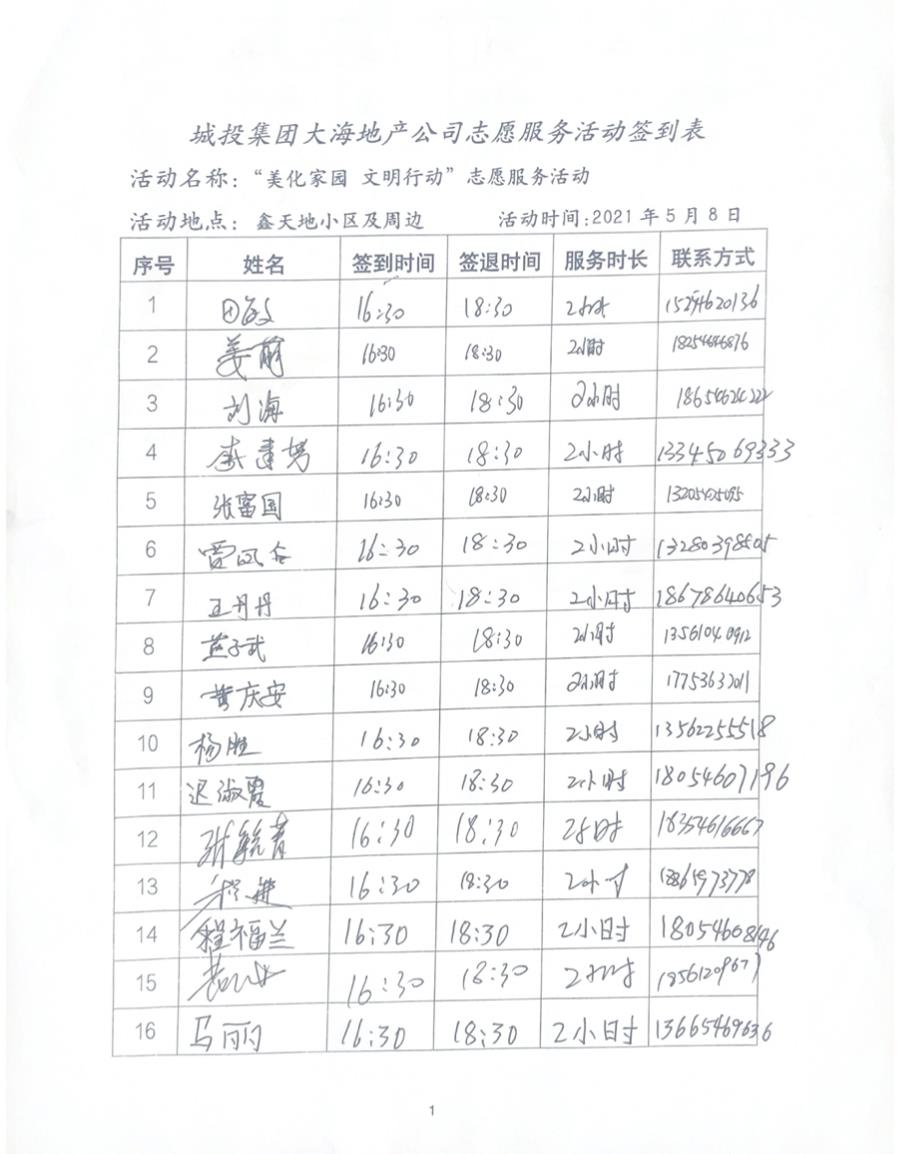 城投集团大海地产公司志愿服务活动签到表
活动名称：“美化家园 文明行动”志愿服务活动
活动地点： 鑫天地小区及周边 活动时间:2021 年 5 月 8 日
序号 姓名 签到时间 签退时间 服务时长 联系方式
1 田敏 16:30 18:30 2小时 15254620136
2 姜丽 16:30 18:30 2小时 18254646876
3 刘海 16:30 18:30 2小时 18654624222
4 16:30 18:30 2小时 13345069333
5 张富国 16:30 18:30 2小时
6 贾凤 16:30 18:30 2小时
7 王丹丹 16:30 18:30 2小时 18678640653
8 燕子武 16:30 18:30 2小时 13561040912
9 黄庆安 16:30 18:30 2小时 17753632011
10 杨胜 16:30 18:30 2小时 13562255518
11 迟淑霞 16:30 18:30 2小时 18054607196
12 张毓菁 16:30 18:30 2小时 18354616667
13 16:30 18:30 2小时
14 程福兰 16:30 18:30 2小时 18054608146
15 16:30 18:30 2小时 18561209677
16 马丽 16:30 18:30 2小时 13665469636
1